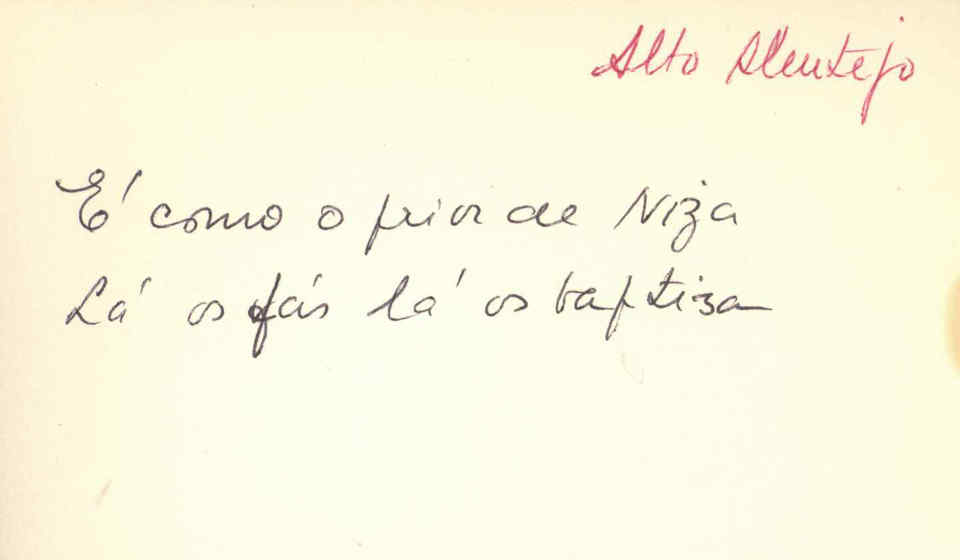 Alto Alentejo
É como o prior de Niza
Lá os fás lá os baptiza